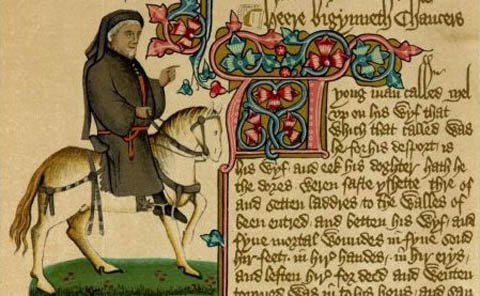 Heere bigynneth Chaucers
A
yong man called Mel
vp on his wyf that
which that called was
he for his desport is
his wyf and eek his doghter hath he
the dores weren faste yshette thre of
and setten laddres to the walles of
been entred and betten his wyf and
fyue mortal woundes in fyue sond
hir feet in hir handes in hir erys
and leften hir for deed and wenten
torned was in to his hous and